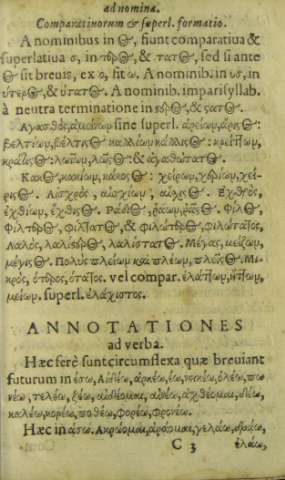 ad nomina.
Comparatinorum & superl. formatio.
A nominibus in Θ, fiunt comparatiua &
superlatiua σ, in τερΘ, & τατΘ, sed si ante
Θ sit breuis, ex ο, fit ω. A nominib. in υς, in
ύτερΘ, & ύτατΘ. A nominib. imparisyllab.
à neutra terminatione in
Αγαθὸς, ἀμείνων sine superl. ἀρείων, ἄρισΘ:
βελτίων, βέλτισΘ καλλίων κάλλισΘ: κρείττων,
κράτισΘ: λωΐων, λῶσΘ: & ἀγαθώτατΘ.
ΚακΘ, κακίων, κάκισΘ: χείρων, χερείων, χεί-
ρισΘ. Αἰσχρὸς, αἰσχίων, αἴσχισΘ. Εχθρὸς,
ἐχθίων, ἔχθισΘ. ΡάδιΘ, ῥάων, ῥᾷσΘ. ΦίλΘ,
ΦίλτερΘ, φίλτατΘ, & φιλώτερΘ, φιλώταΤος,
Λαλὸς, λαλίστερΘ, λαλίστατΘ. Μέγας, μείζων,
μέγισΘ. Πολὺς πλείων καὶ πλέων, πλεῖσΘ. Μι-
κρὸς, ότερος, ότατος. vel compar. ἐλάττων, ἥττων,
μείων. superl. ἐλάχιστος.
ANNOTATIONES
ad verba.
Hæc ferè sunt circumflexa quæ breuiant
futurum in έσω, Αἰνέω, ἀρκέω, έω, νεικέω, ὀλέω, πο
νέω, τελέω, ξέω, αἰδέομαι, ἀκέω, ἄχθέομαι,
καλέω, κορέω, ποθέω, φορέω, φρονέω.
Hæc in άσω. Ακρόομαι, ἀράομαι, γελάω,
C 3 ἐλάω,